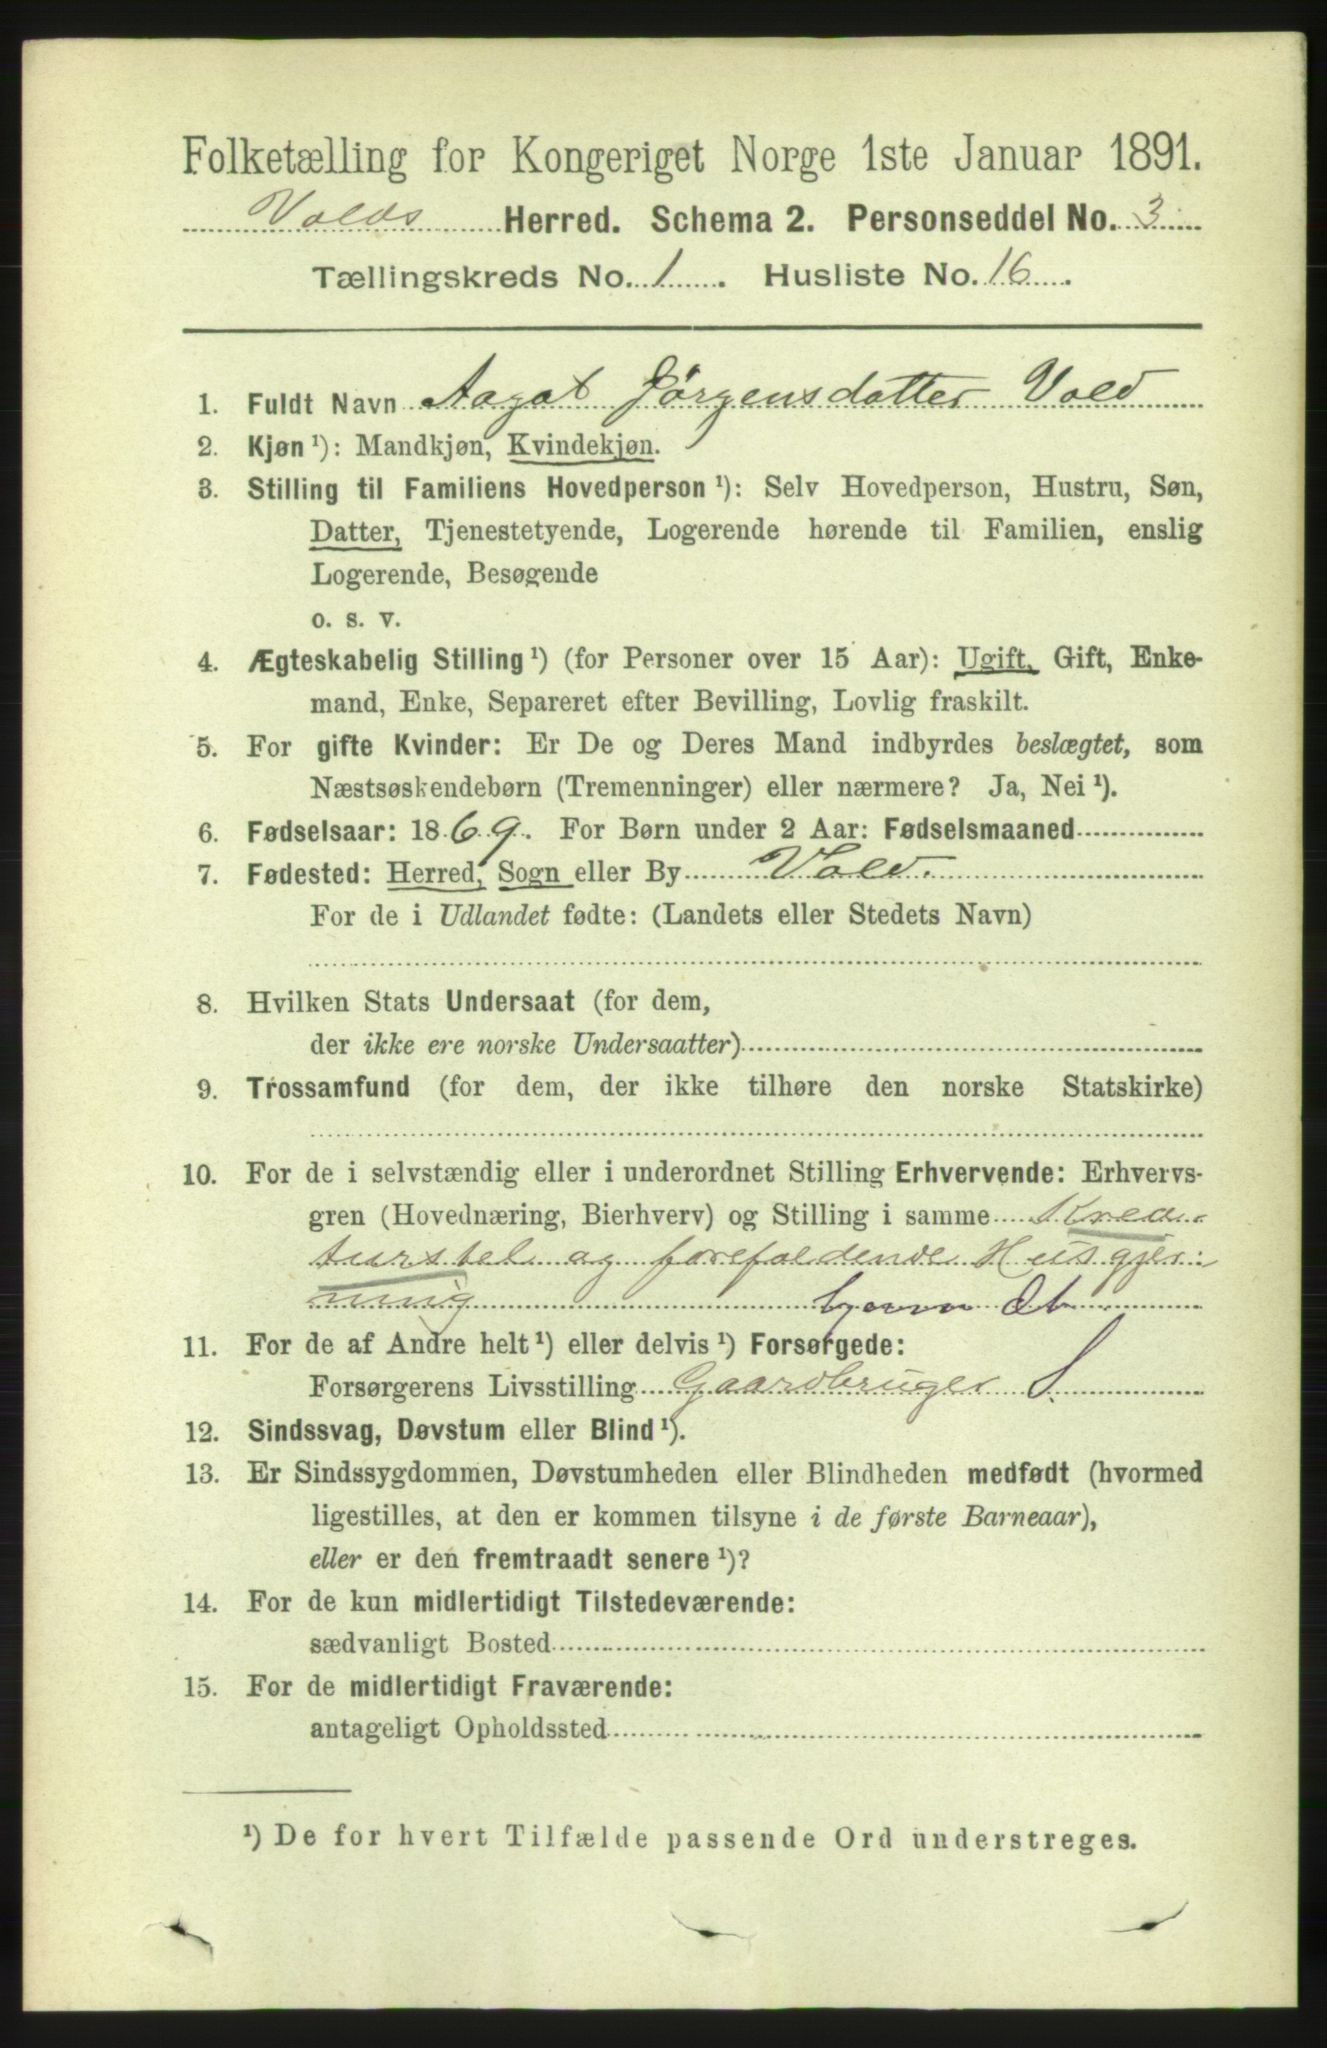 Folketælling for Kongeriget Norge 1ste Januar 1891.
Volds Herred. Schema 2. Personseddel No. 3
Tællingskreds No. 1. Husliste No. 16.
1. Fuldt Navn Aagot Jørgensdatter Vold
2. Kjøn ¹): Mandkjøn, Kvindekjøn.
3. Stilling til Familiens Hovedperson ¹): Selv Hovedperson, Hustru, Søn,
Datter, Tjenestetyende, Logerende hørende til Familien, enslig
Logerende, Besøgende
o. s. v.
4. Ægteskabelig Stilling ¹) (for Personer over 15 Aar): Ugift, Gift, Enke-
mand, Enke, Separeret efter Bevilling, Lovlig fraskilt.
5. For gifte Kvinder: Er De og Deres Mand indbyrdes beslægtet, som
Næstsøskendebørn (Tremenninger) eller nærmere? Ja, Nei ¹).
6. Fødselsaar: 1869. For Børn under 2 Aar: Fødselsmaaned
7. Fødested: Herred, Sogn eller By Vold.
For de i Udlandet fødte: (Landets eller Stedets Navn)
8. Hvilken Stats Undersaat (for dem,
der ikke ere norske Undersaatter)
9. Trossamfund (for dem, der ikke tilhøre den norske Statskirke)
10. For de i selvstændig eller i underordnet Stilling Erhvervende: Erhvervs-
gren (Hovednæring, Bierhverv) og Stilling i samme Krea-
turstel og forefaldende Husgjer-
ning
11. For de af Andre helt ¹) eller delvis ¹) Forsørgede:
Forsørgerens Livsstilling Gaardbruger S
12. Sindssvag, Døvstum eller Blind ¹).
13. Er Sindssygdommen, Døvstumheden eller Blindheden medfødt (hvormed
ligestilles, at den er kommen tilsyne i de første Barneaar),
eller er den fremtraadt senere ¹)?
14. For de kun midlertidigt Tilstedeværende:
sædvanligt Bosted
15. For de midlertidigt Fraværende:
antageligt Opholdssted
¹) De for hvert Tilfælde passende Ord understreges.